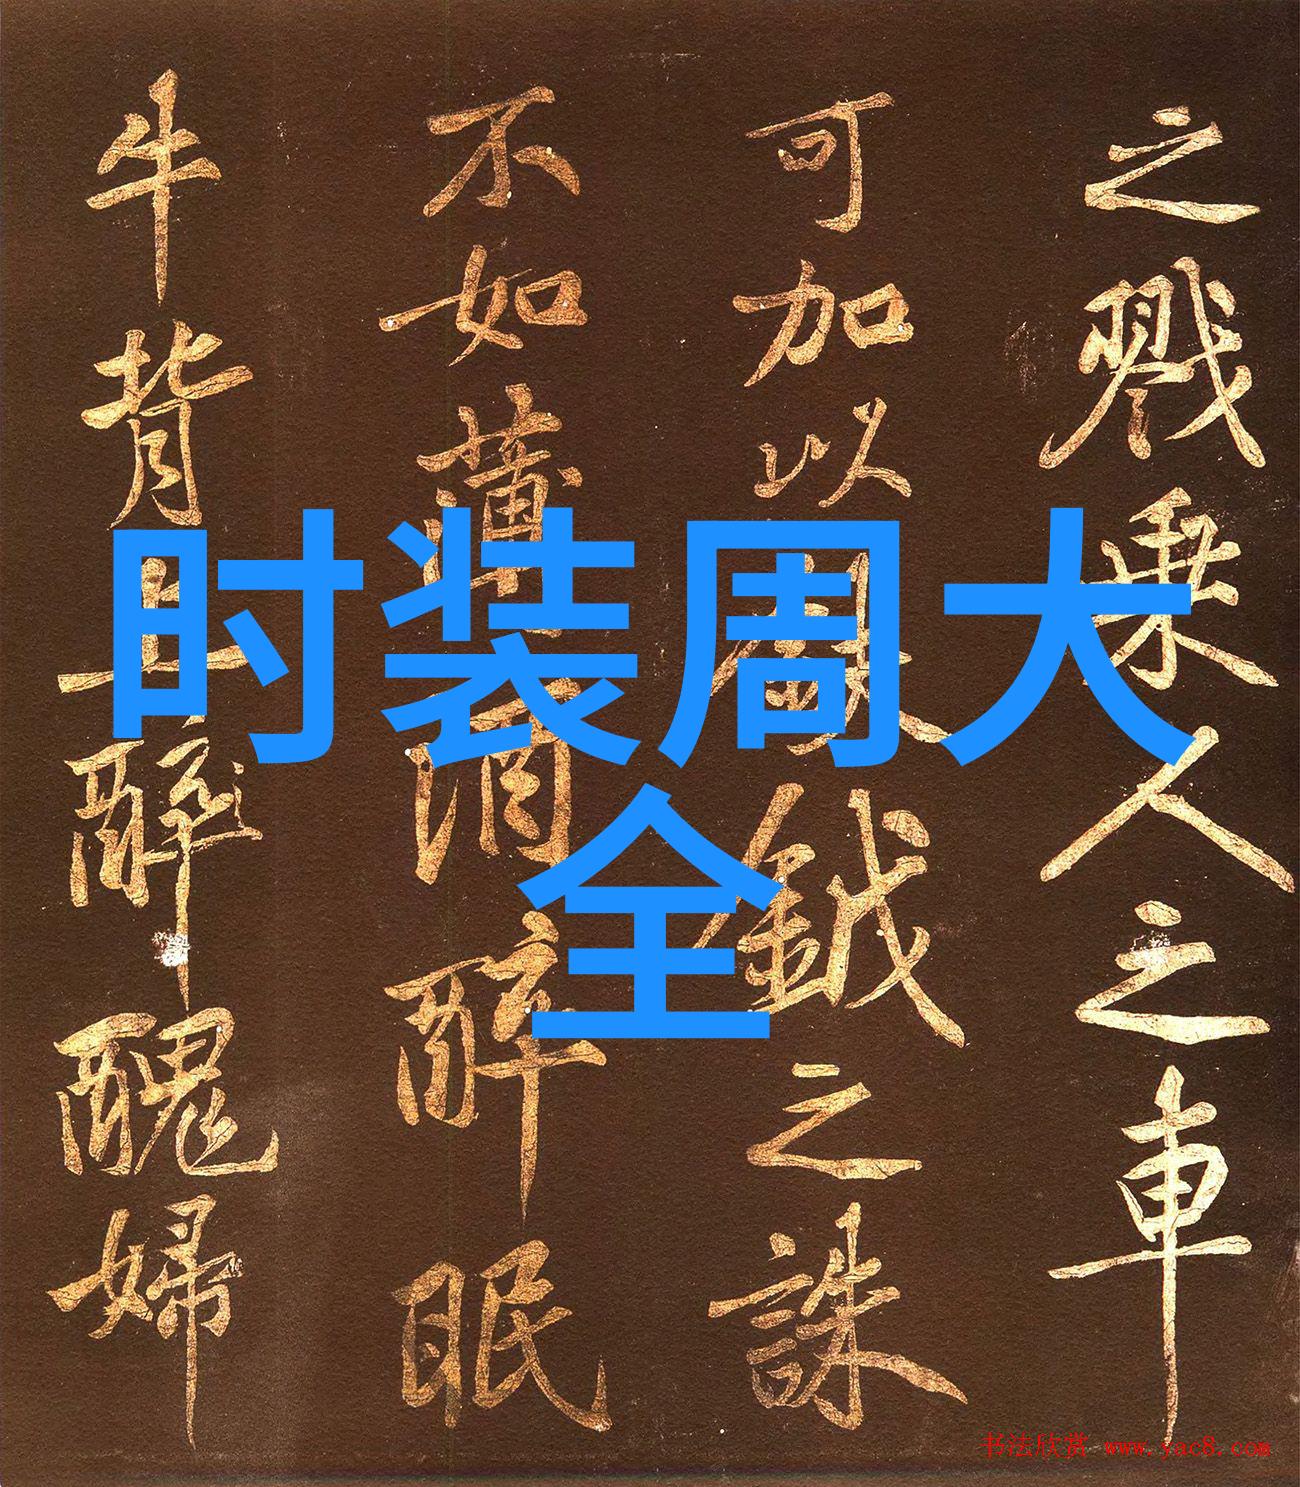 之戮乘人之車
可加以鈇鉞之誅
不如薄酒醉眠
牛背上醉醜婦
时装周大
全
书法欣赏 www.yac8.com